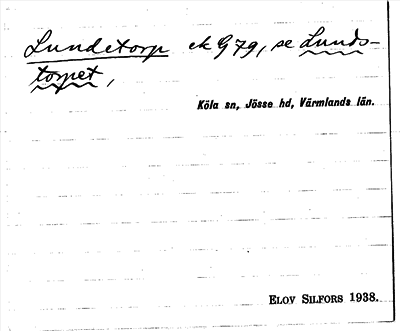 Lundetorp ek G 79, se Lunds-
torpet,
Köla sn, Jösse hd, Värmlands län.
ELOV SILFORS 1938.